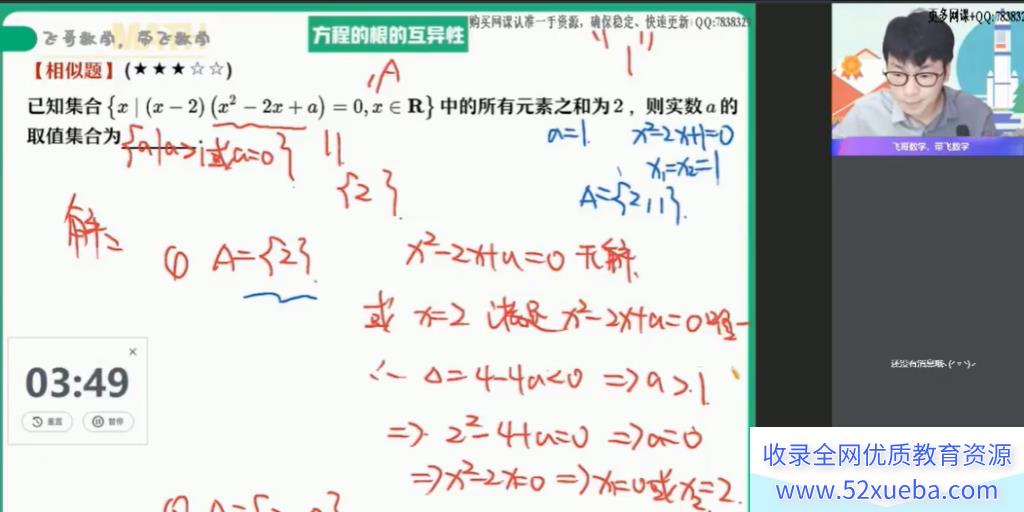 飞哥数学，带飞数学
方程的根的互异性
购买网课认准一手资源，确保稳定、快速更新!QQ:7838329
更多网课+QQ:78383
【相似题】(★★★☆☆)
A
已知集合{x | (x−2)(x²−2x+a)=0,x∈R}中的所有元素之和为2，则实数a的
取值集合为
{a|a>1或a=0}
{2}.
a=1. x²-2x+1=0
x₁=x₂=1
A={2,1}.
解:
① A={2}. x²-2x+a=0 无解.
或 x=2 满足 x²-2x+a=0
∴ Δ=4-4a<0 ⇒ a>1.
⇒ 2²-4+a=0 ⇒ a=0
⇒ x²-2x=0 ⇒ x₁=0或x₂=2.
飞哥数学，带飞数学
还没有消息哦~
×
03:49
重置
暂停
收录全网优质教育资源
www.52xueba.com